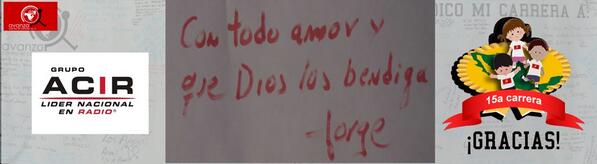 avanza
DICO MI CARRERA A:
GRUPO
ACIR
LIDER NACIONAL
EN RADIO®
Con todo amor y
que Dios los bendiga
Jorge
15a carrera
¡GRACIAS!